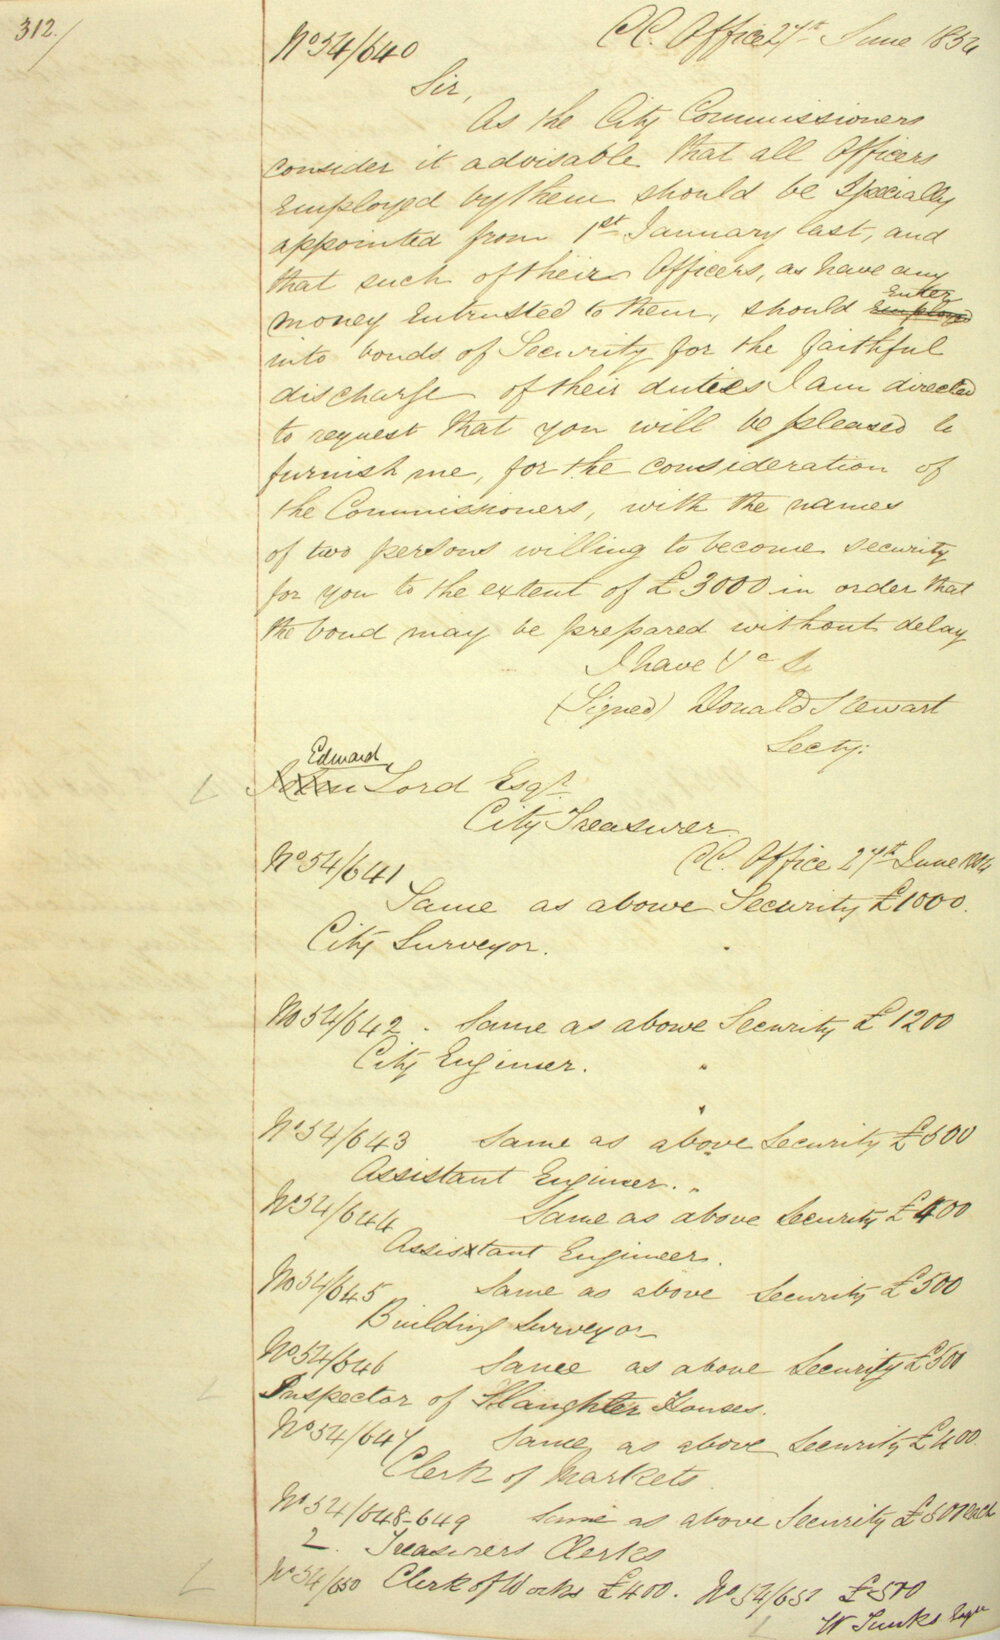 312./
No 54/640
C.C. Office 27th June 1854
Sir,
As the City Commissioners
consider it advisable that all Officers
Employed by them should be Specially
appointed from 1st January last, and
that such of their Officers, as have any
money Entrusted to them, should Employ Enter
into bonds of Security for the faithful
discharge of their duties I am directed
to request that you will be pleased to
furnish me, for the consideration of
the Commissioners, with the names
of two persons willing to become security
for you to the extent of £3000 in order that
the bond may be prepared without delay
I have &c
(Signed) Donald Stewart
Secty:
Edward
Lord Esqr.
City Treasurer
No 54/641
C.C. Office 27th June 1854
Same as above Security £1000.
City Surveyor.
No 54/642. Same as above Security £1200
City Engineer.
No 54/643 Same as above Security £500
Assistant Engineer.
No 54/644 Same as above Security £400
Assistant Engineer.
No 54/645 Same as above Security £500
Building Surveyor
No 54/646 Same as above Security £500
Inspector of Slaughter Houses.
No 54/647 Same as above Security £400
Clerk of Markets.
No 54/648-649 Same as above Security £500 each
2. Treasurers Clerks
No 54/650 Clerk of Works £400. No 54/651 £500
W Esqre